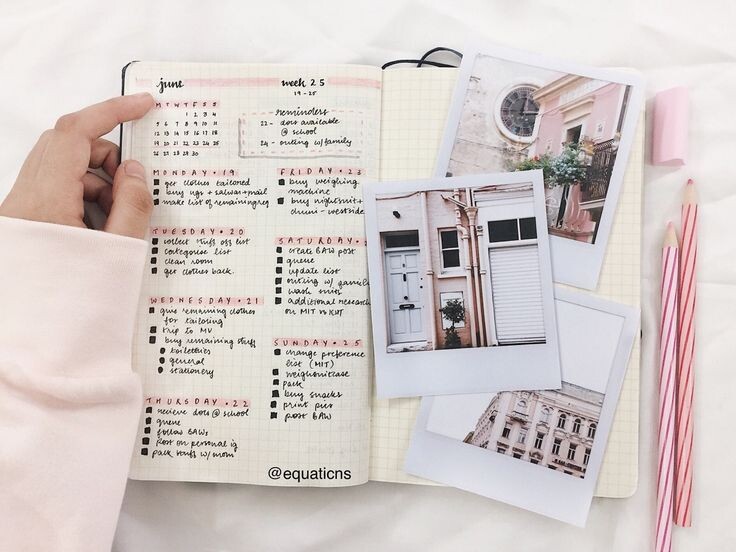 june
M T W T F S S
1 2 3 4
5 6 7 8 9 10 11
12 13 14 15 16 17 18
19 20 21 22 23 24 25
26 27 28 29 30
week 25
19 - 25
reminders
22 - docs available
@ school
24 - outing w/ family
MONDAY • 19
get clothes tailored
buy ngs + salwar + mail
make list of remaining req
TUESDAY • 20
collect stuff off list
categorise list
clean room
get clothes back.
WEDNESDAY • 21
give remaining clothes
for tailoring
trip to MV
buy remaining stuff
toiletries
general
stationery
THURSDAY • 22
recieve docs @ school
queue
follow BAWs
post on personal ig
pack stuffs w/ mom
FRIDAY • 23
buy weighing
machine
buy nightsuit +
- westside
SATURDAY
create BAW post
queue
update list
outing w/ family
wash
additional research
on MIT vs
SUNDAY • 25
change preference
list (MIT)
weigh suitcase
pack
buy snacks
print pics
post BAW
@equaticns